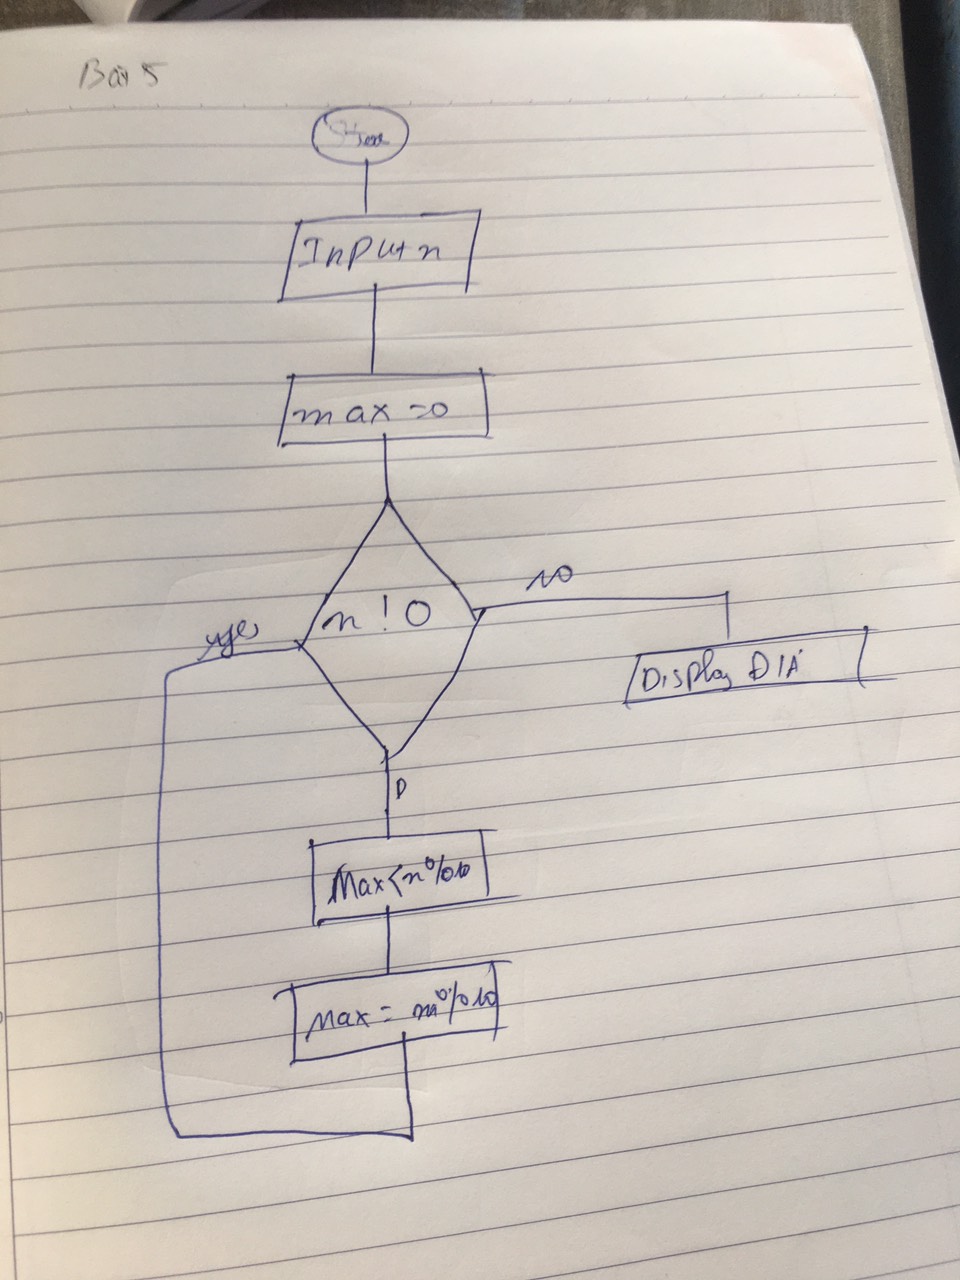 Bài 5
Input n
max = 0
n ! 0
NO
yes
Display D1A
D
Max < n % 10
Max = n % 10